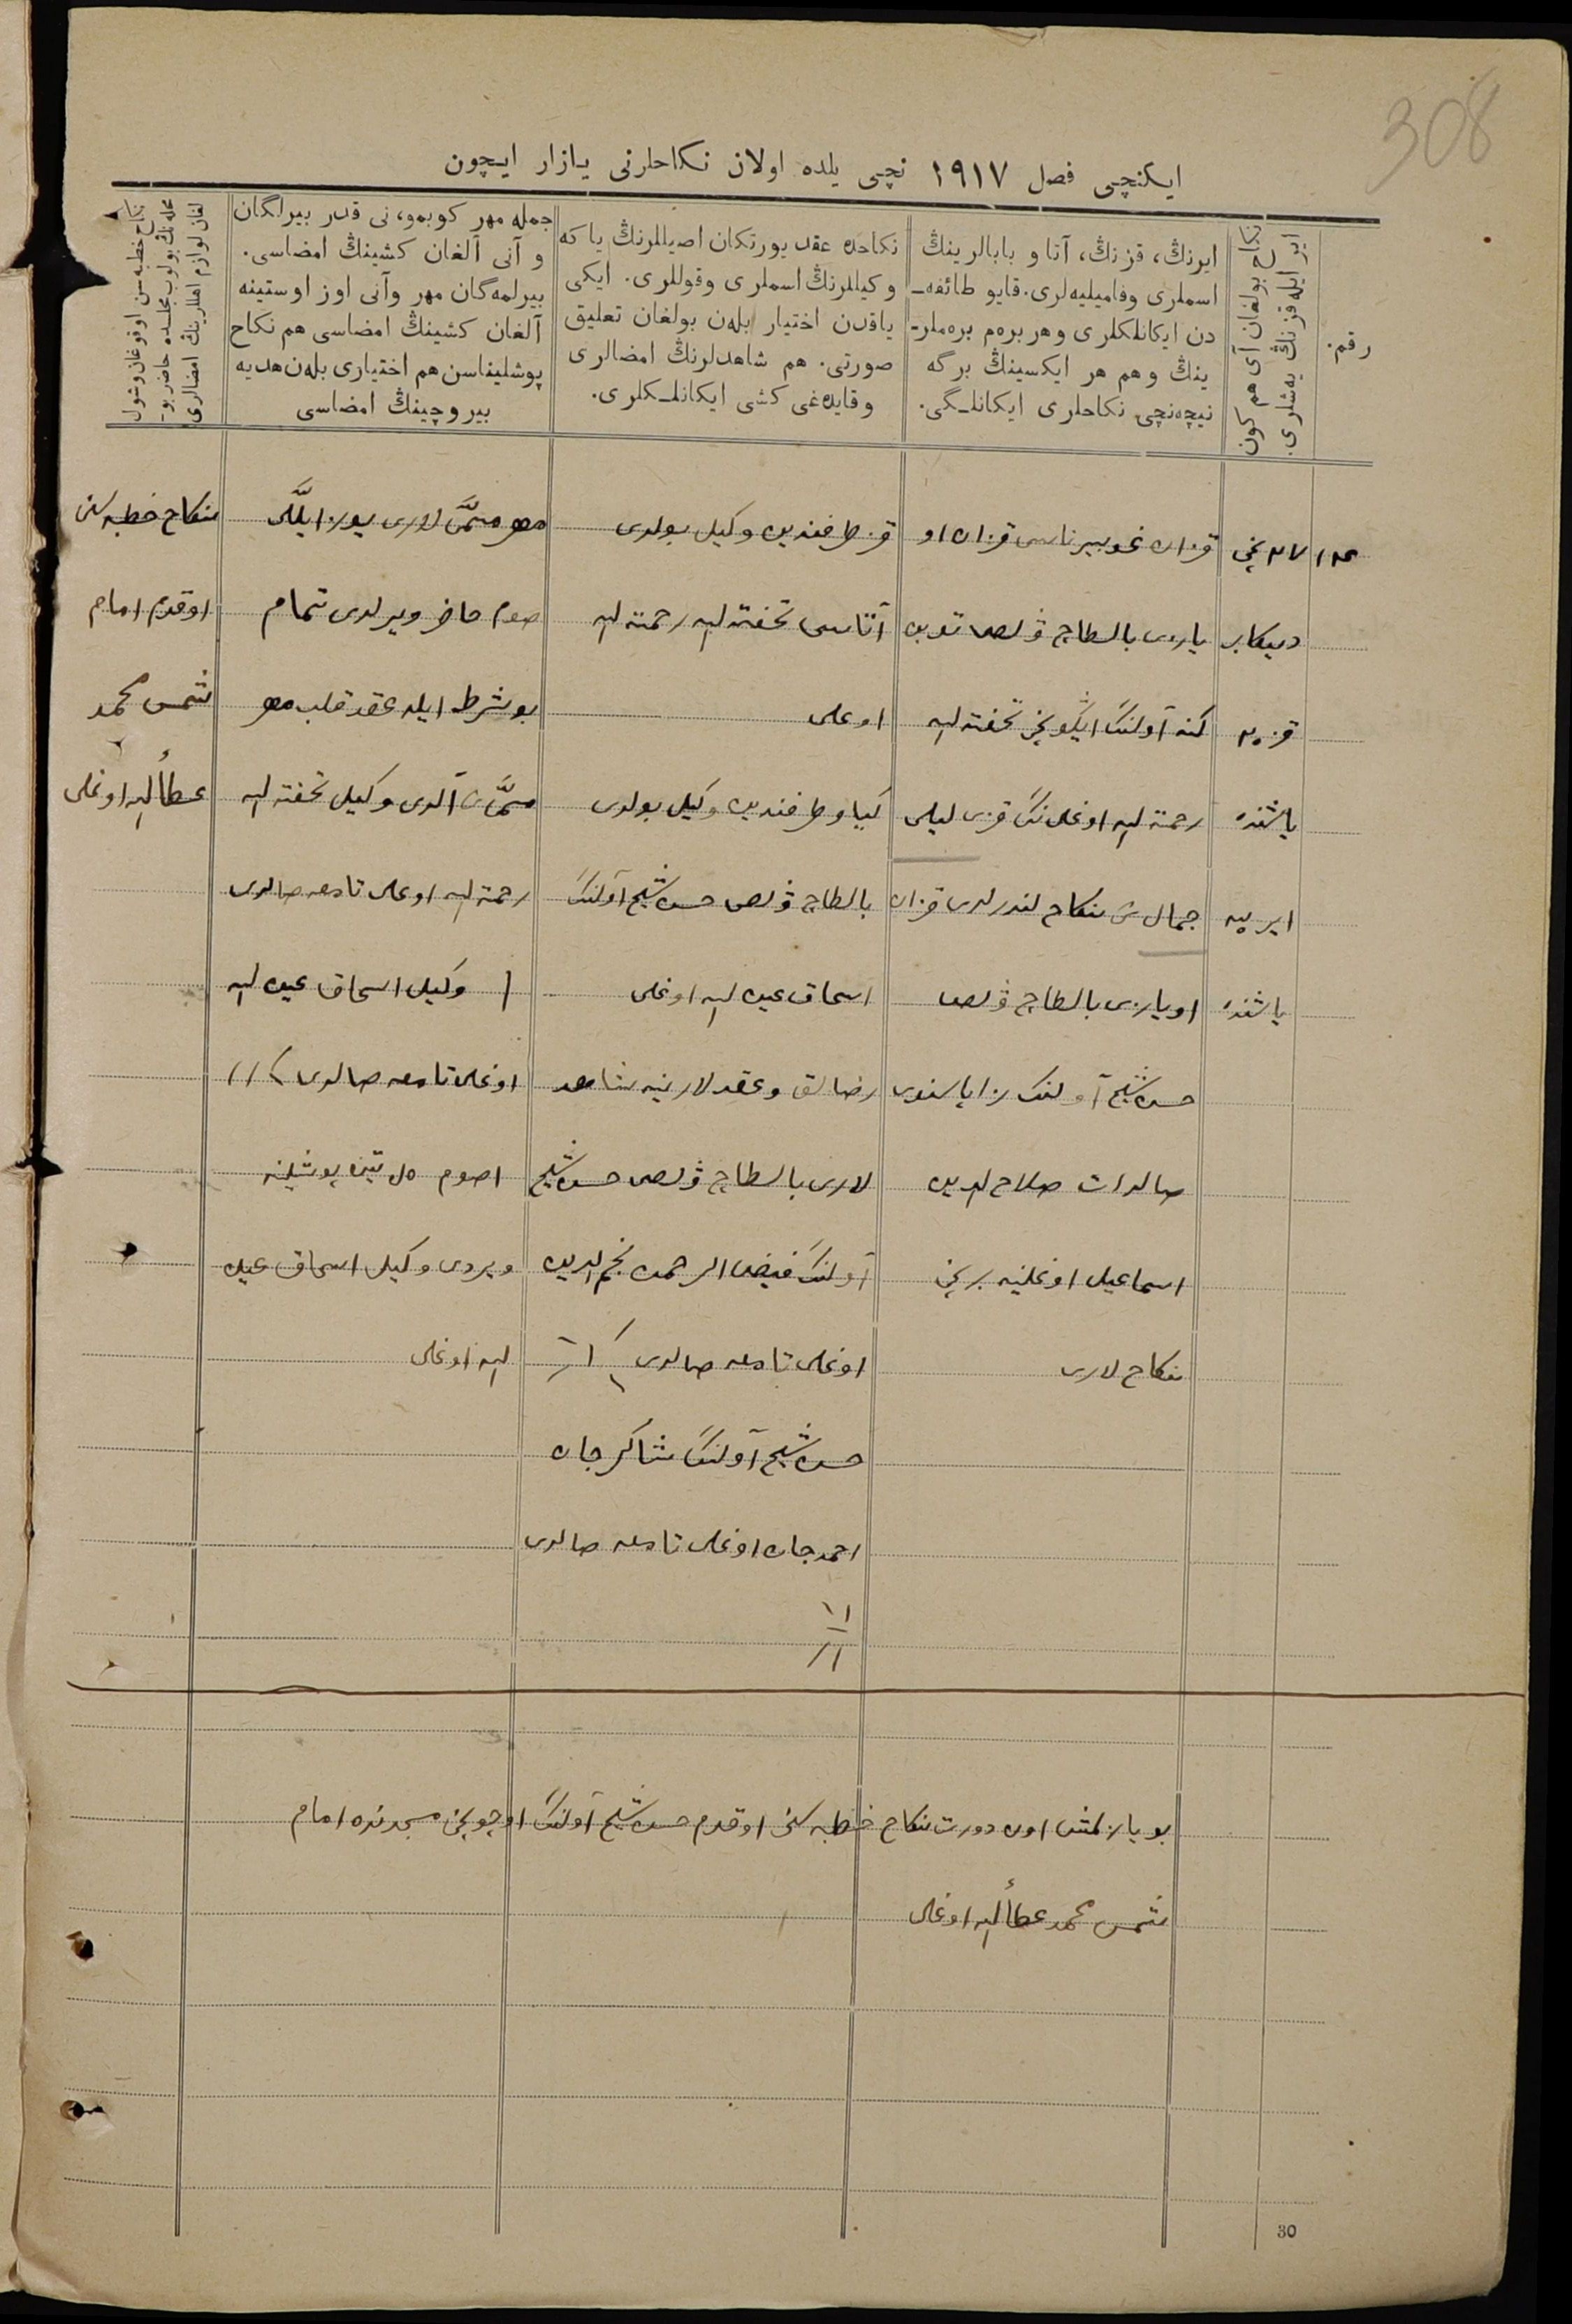 308
ایکنچی فصل ۱۹۱۷ نچی یلده اولان نکاحلرنی یازار ایچون
رقم.
نکاح بولغان آی هم کون
ایر ایله قزنڭ یه‌شلری.
ایرنڭ، قزنڭ، آتا و بابالرینڭ
اسملری وفامیلیه‌لری. قایو طائفه‌ـ
دن ایکانلکلری وهر بره‌م بره‌ملرـ
ینڭ وهم هر ایکسینڭ برگه
نیچه‌نچی نکاحلری ایکانلـگی.
نکاحده عقد یورتکان اصیللرنڭ یا که
وکیللرنڭ اسملری وقوللری. ایکی
یاقدن اختیار بله‌ن بولغان تعلیق
صورتی. هم شاهدلرنڭ امضالری
وقایده‌غی کشی ایکانلـکلری.
جمله مهر کوبمو، نی قدر بیرلگان
و آنی آلغان کشینڭ امضاسی.
بیرلمه‌گان مهر وآنی اوز اوستینه
آلغان کشینڭ امضاسی هم نکاح
پوشلیناسن هم اختیاری بله‌ن هدیه
بیروچینڭ امضاسی
نکاح خطبه‌سن اوقوغان وشول
محله‌نڭ بولوب مجلسده حاضر بوـ
لغان لوازم اهللرینڭ امضالری
۱۴
۲۷ نچی
دیکابر
قز ۲۰
یاشنده
ایر
یاشنده
قزان غوبیرناسی قزان او
یازی بالطاچ ولص توبن
کنه آولنڭ ایگونچی تحفة لله
رحمة لله اوغلی ننڭ قزی لیلی
جمال نی نکاح لندرلدی قزان
اویازی بالطاچ ولص
حسن شیخ آولنڭ
صالدات صلاح الدین
اسماعیل اوغلینه برنچی
نکاح لاری
قز طرفندین وکیل بولدی
آتاسی تحفة لله رحمة لله
اوغلی
کیاو طرفندین وکیل بولدی
بالطاچ ولص حسن شیخ آولنڭ
اسحاق عین لله اوغلی
رضالق و عقدلارینه شاهد
لاری بالطاچ ولص حسن شیخ
آولنڭ فیض الرحمن نجم الدین
اوغلی تامغه صالدی
حسن شیخ آولنڭ شاکرجان
احمدجان اوغلی تامغه صالدی
مهر مسمی لاری یوز ایللی
صوم حاضر ویرلدی تمام
بو شرط ایله عقد قلب مهر
مسمی نی آلدی وکیل تحفة لله
رحمة لله اوغلی تامغه صالدی
وکیل اسحاق عین لله
اوغلی تامغه صالدی
اصوم تین پوشلینه
ویردی وکیل اسحاق عین
لله اوغلی
نکاح خطبه سنی
اوقدم امام
شمس محمد
عطأ لله اوغلی
بو یازلمش اون دورت نکاح خطبه سنی اوقدم حسن شیخ آولنڭ اوچونچی مسجدنده امام
شمس محمد عطأ لله اوغلی
30